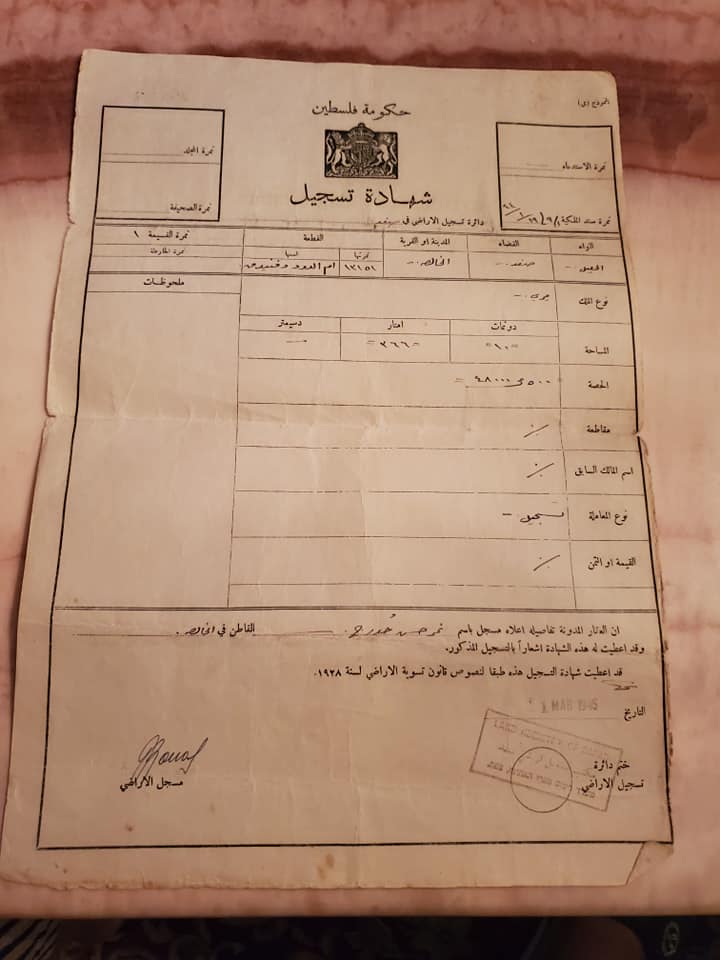 النموذج (ي)
حكومة فلسطين
شهادة تسجيل
نمرة المجلد
نمرة الصحيفة
نمرة الاستدعاء
نمرة سند الملكية
دائرة تسجيل الاراضي في صفد
اللواء
القضاء
المدينة او القرية
القطعة
نمرتها
اسمها
نمرة القسيمة ١
نمرة الخارطة
الجليل
صفد
الخالصه
١٣١٥١
ملحوظات
نوع الملك
ميري
المساحة
دونمات
امتار
دسيمتر
"١٠"
=٣٦٦=
الحصة
مقاطعة
٪
اسم المالك السابق
٪
نوع المعاملة
تسجيل
القيمة او الثمن
٪
ان العقار المدونة تفاصيله اعلاه مسجل باسم نمر حسن القاطن في الخالصه.
وقد اعطيت له هذه الشهادة اشعاراً بالتسجيل المذكور.
قد اعطيت شهادة التسجيل هذه طبقا لنصوص قانون تسوية الاراضي لسنة ١٩٢٨.
التاريخ
MAR 1945
LAND REGISTRY OF
ختم دائرة
تسجيل الاراضي
مسجل الاراضي